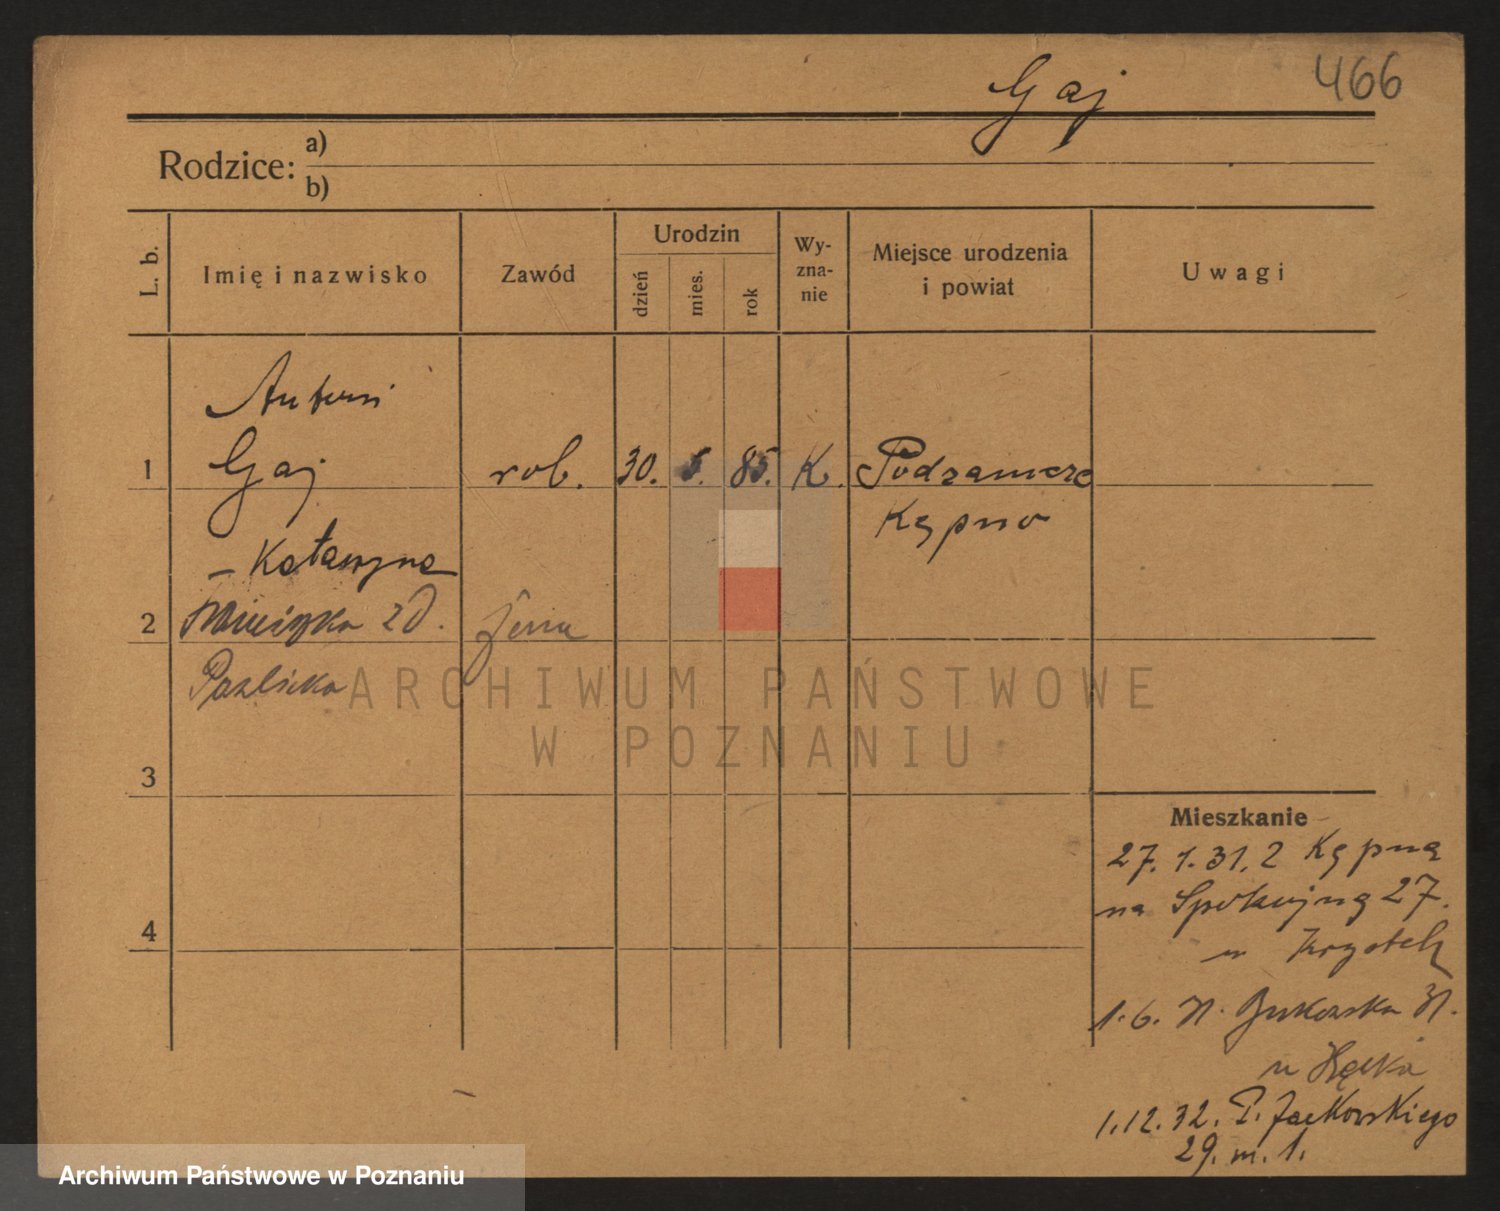 Gaj 466
Rodzice: a)
b)
L. b. Imię i nazwisko Zawód Urodzin dzień mies. rok Wy-zna-nie Miejsce urodzenia i powiat Uwagi
Antoni
1 Gaj rob. 30. 5. 85. K. Podzamcze
Kępno
– Katarzyna
2 z d. żona
3
Mieszkanie
27. 1. 31. z Kępna
na Spokojną 27.
4
u
1. 6. 31. Bukowska 31.
u
1.12.32. P. Jackowskiego
29. m. 1.
ARCHIWUM PAŃSTWOWE
W POZNANIU
Archiwum Państwowe w Poznaniu